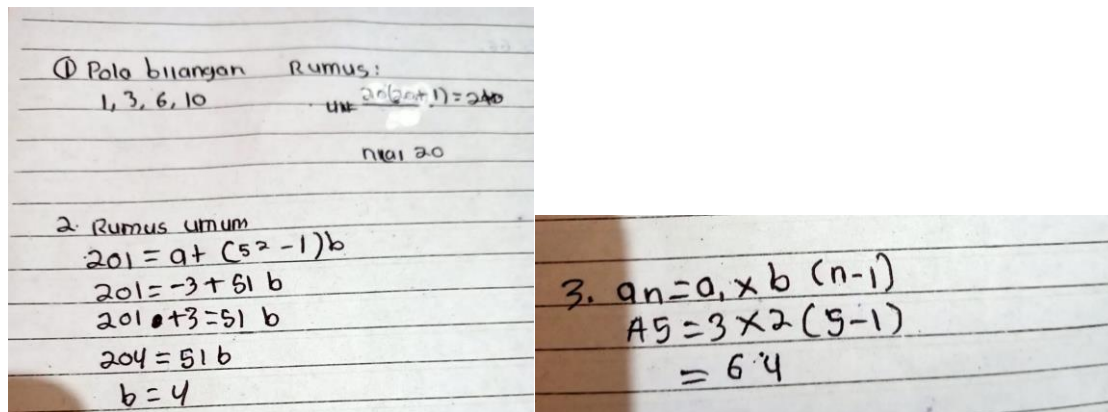 ① Pola bilangan Rumus:
1, 3, 6, 10
Un= 20(20+1)=210
nilai 20
2. Rumus umum
201 = a + (52 - 1)b
201 = -3 + 51 b
201 +3 = 51 b
204 = 51 b
b = 4
3. an = a, x b (n-1)
A5 = 3 x 2 (5-1)
= 6.4